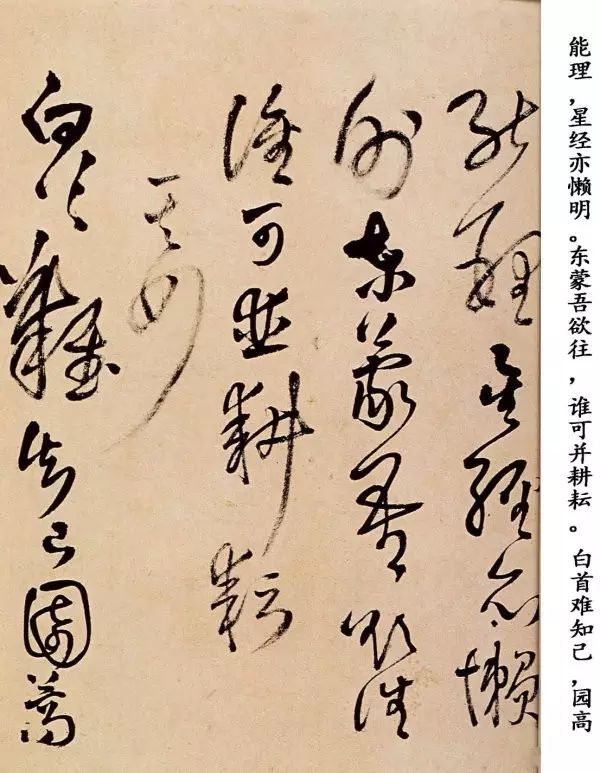 能理，星经亦懒明。东蒙吾欲往，谁可并耕耘。白首难知己，园高
能理星經亦懶
明東蒙吾欲往
誰可並耕耘
其四
白首難知己園高